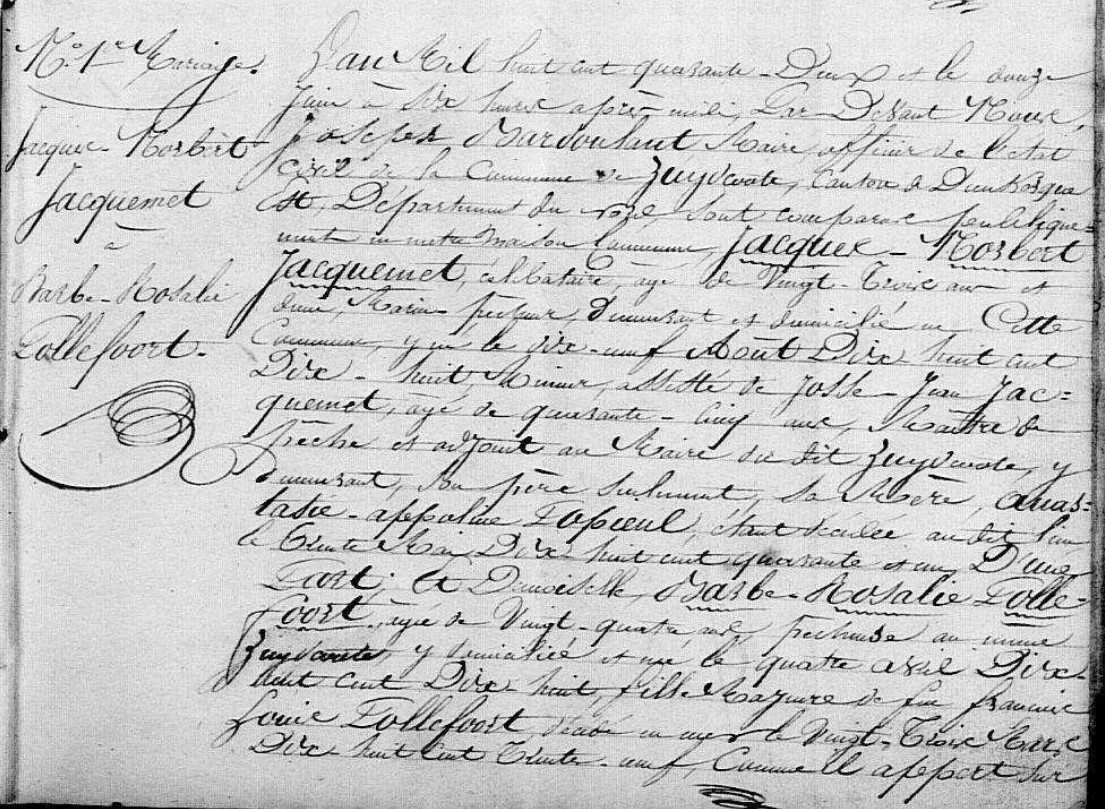 N.o 1.er Mariage.
Jacques-Norbert
Jacquemet
à
Barbe-Rosalie
Tollefoort.
L'an Mil huit cent quarante-Deux et le douze
Juin à six heures après-midi, Par Devant Nous,
Joseph Bardoulant Maire, officier de l'état
civil de la Commune de Zuydcoote, Canton de Dunkerque
Est, Département du nord sont comparus publique=
ment en notre Maison Commune, Jacques-Norbert
Jacquemet, célibataire, agé de Vingt-Trois ans et
demi, Marin-pêcheur, demeurant et domicilié en Cette
Commune, y né le dix-neuf Août Dix huit cent
Dix-huit, Mineur, assisté de Josse-Jean Jac=
quemet, agé de quarante-cinq ans, Maître de
pêche et adjoint au Maire du dit Zuydcoote, y
demeurant, son père seulement, sa Mère, anas=
tasie-appoline étant décédée au dit lieu
le Trente Mai Dix-huit cent quarante et un, D'une
Part; Et Demoiselle, Barbe-Rosalie Tolle-
foort, agée de Vingt-quatre ans, pêcheuse au même
Zuydcoote, y domiciliée et née le quatre avril Dix-
huit cent Dix-huit, fille Majeure de feu francois
Louis Tollefoort, décédé en mer le Vingt-Trois Mars
Dix-huit cent Trente-neuf, Comme il appert sur